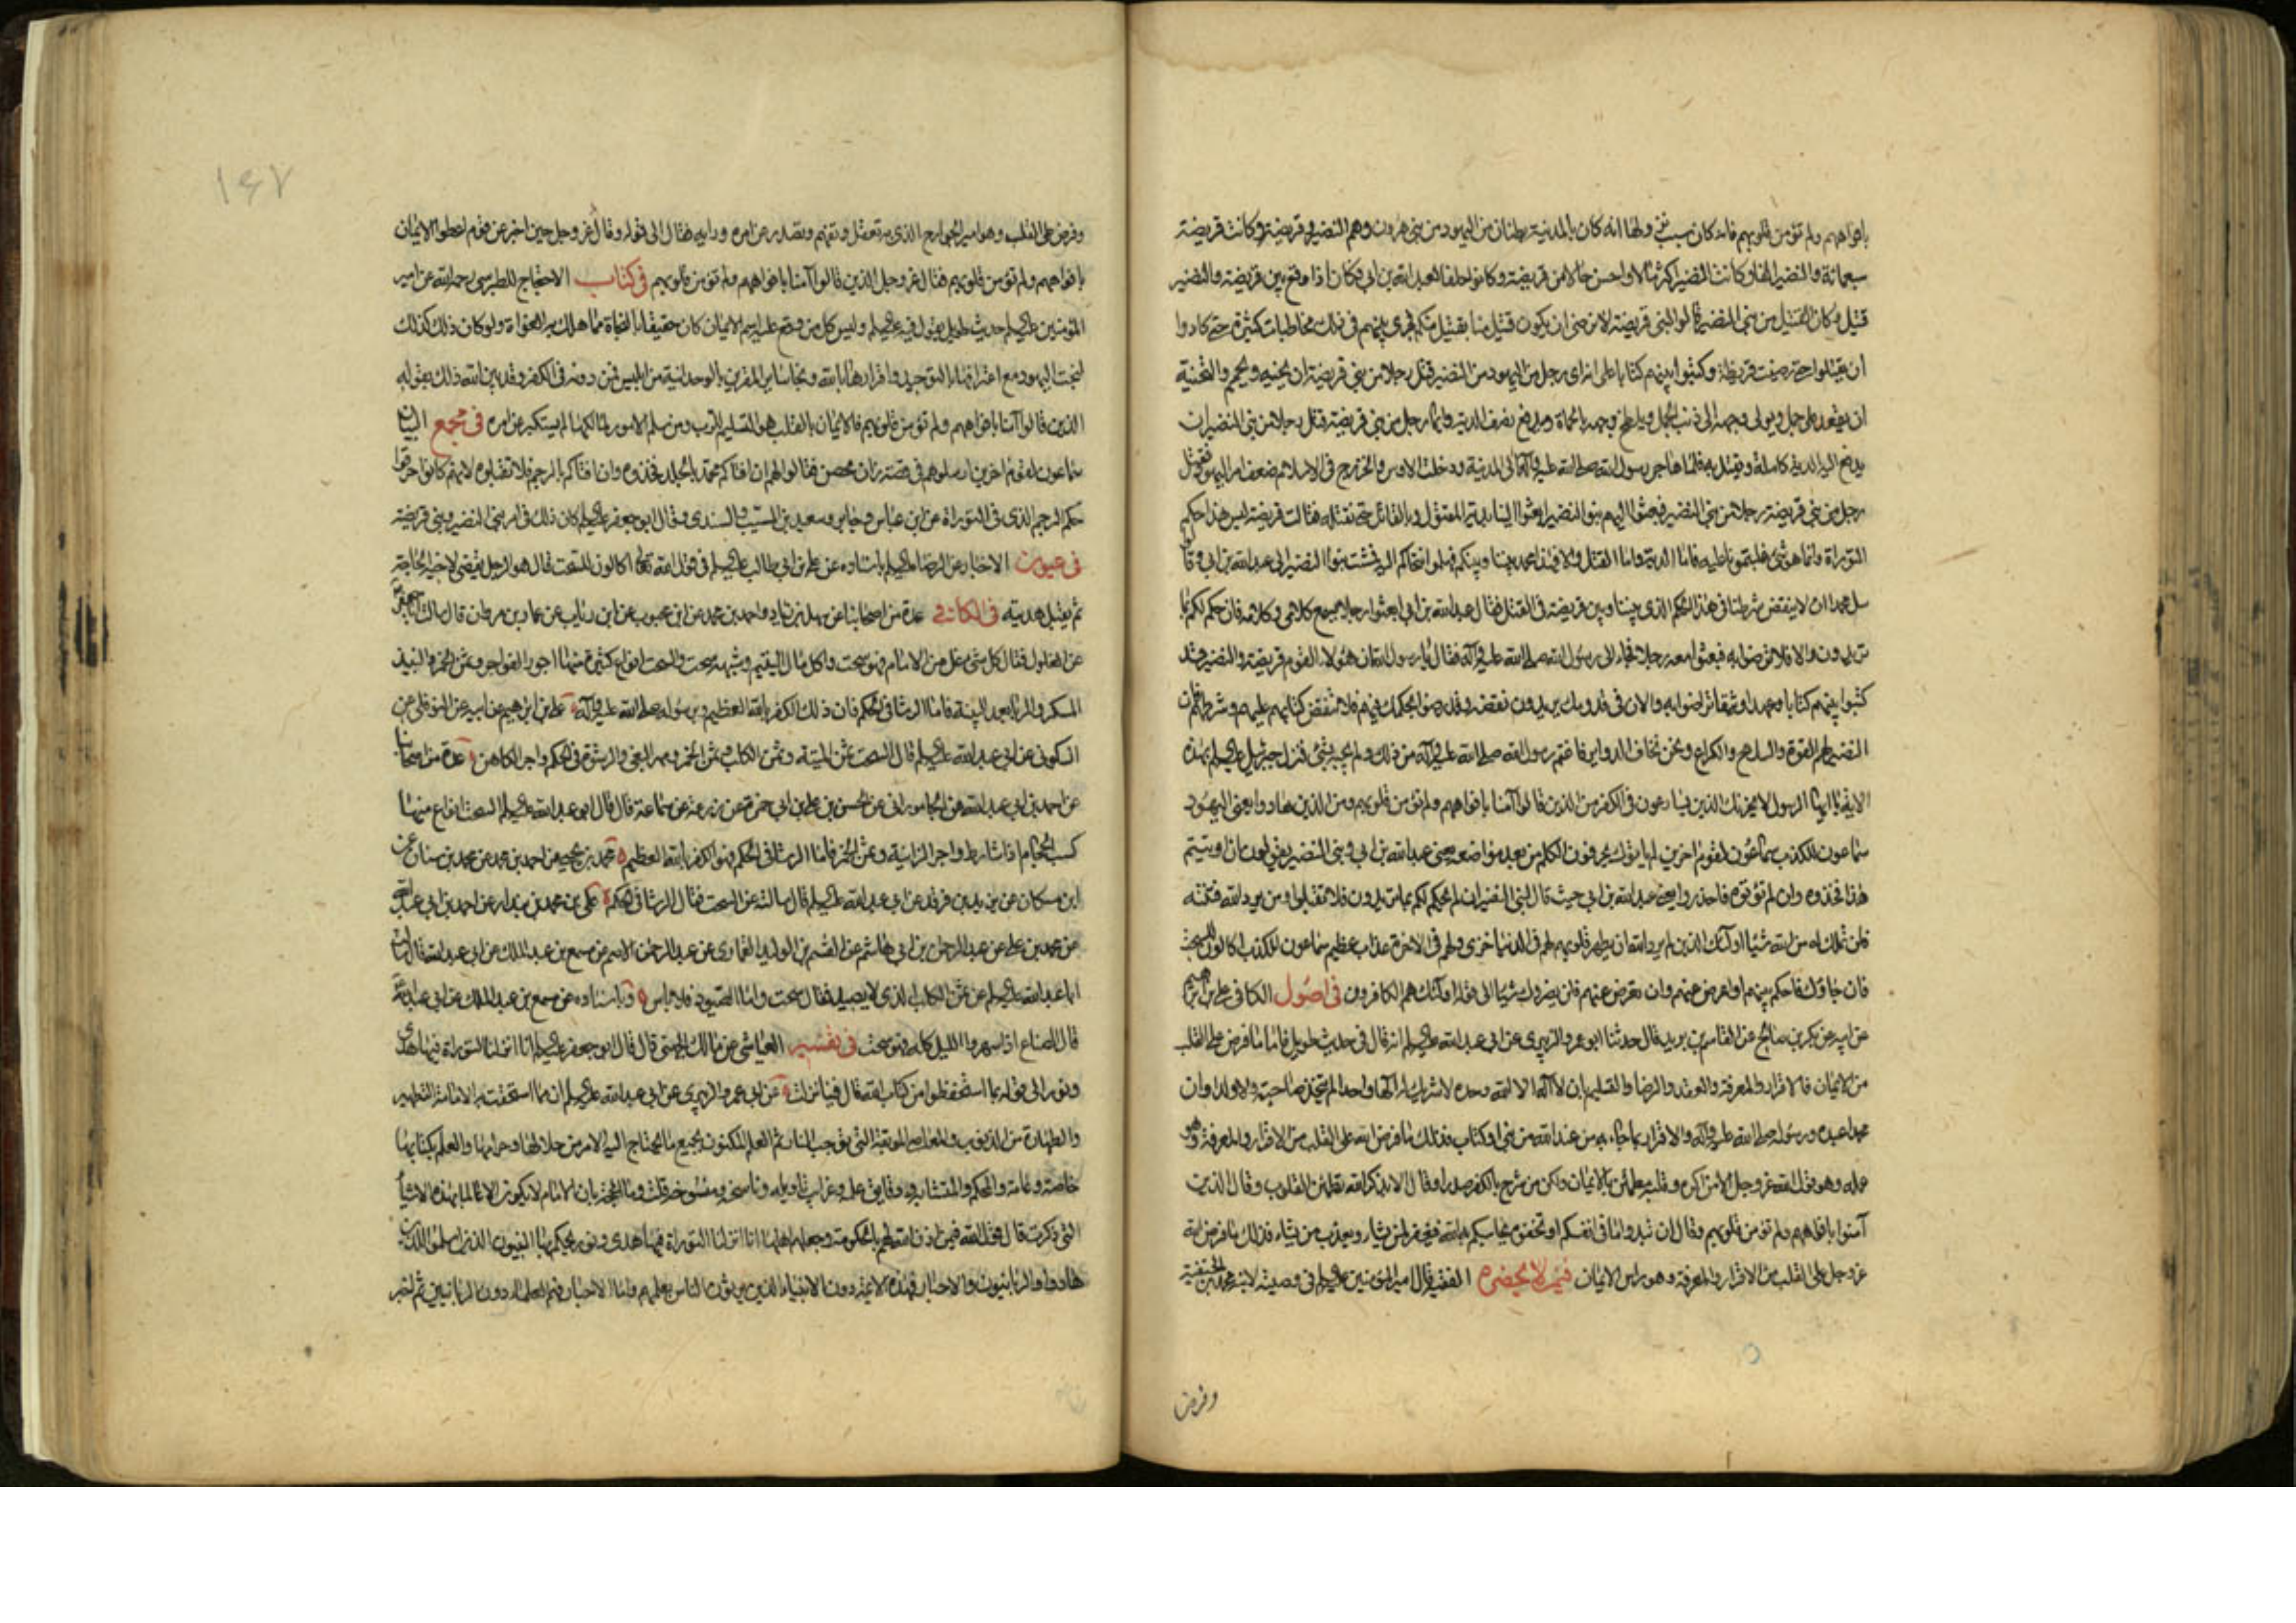 بافواههم ولم تؤمن قلوبهم فانه كان سبب نزولها انه كان بالمدينة بطنان من اليهود من بني هرون وهم النضير وقريضة وكانت قريضة
سبعمائة والنضير الفا وكانت النضير اكثر مالا واحسن حالا من قريضة وكانوا حلفاء لعبد الله بن ابي فكان اذا وقع بين قريضة والنضير
قتيل وكان القتيل من بني النضير قالوا لبني قريضة لا نرضى ان يكون قتيل منا بقتيل منكم فجرى بينهم في ذلك مخاطبات كثيرة حتى كادوا
ان يقتتلوا حتى رضيت قريظة وكتبوا بينهم كتابا على انه اي رجل من اليهود من النضير قتل رجلا من بني قريضة ان يجنيه ويحمم والتجنية
ان يقعد على جمل ويولى وجهه الى ذنب الجمل ويلطخ وجهه بالحمأة ويدفع نصف الدية وايما رجل من بني قريضة قتل رجلا من بني النضير ان
يدفع اليه الدية كاملة ويقتل به فلما هاجر رسول الله صلى الله عليه وآله الى المدينة ودخلت الاوس والخزرج في الاسلام ضعف امر اليهود فقتل
رجل من بني قريضة رجلا من بني النضير فبعثوا اليهم بنو النضير ابعثوا الينا بدية المقتول وبالقاتل حتى نقتله فقالت قريضة ليس هذا حكم
التوراة وانما هو شيء غلبتمونا عليه فاما الدية واما القتل والا فهذا محمد بيننا وبينكم فهلموا نتحاكم اليه فمشت بنو النضير الى عبد الله بن ابي وقالوا
سل محمدا ان لا ينقض شرطنا في هذا الحكم الذي بيننا وبين قريضة في القتل فقال عبد الله بن ابي ابعثوا رجلا يسمع كلامي وكلامه فان حكم لكم بما
تريدون والا فلا ترضوا به فبعثوا معه رجلا فجاء الى رسول الله صلى الله عليه وآله فقال يا رسول الله ان هؤلاء القوم قريضة والنضير قد
كتبوا بينهم كتابا وعهدا وثيقا تراضوا به والان في قدومك يريدون نقضه وقد رضوا بحكمك فيهم فلا تنقض كتابهم عليهم وشرطهم فان
النضير لهم القوة والسلاح والكراع ونحن نخاف الدواير فاغتم رسول الله صلى الله عليه وآله من ذلك ولم يجبه بشيء فنزل جبرئيل عليه السلام بهذه
الاية يا ايها الرسول لا يحزنك الذين يسارعون في الكفر من الذين قالوا آمنا بافواههم ولم تؤمن قلوبهم ومن الذين هادوا يعني اليهود
سماعون للكذب سماعون لقوم اخرين لم ياتوك يحرفون الكلم من بعد مواضعه يعني عبد الله بن ابي وبني النضير يقولون ان اوتيتم
هذا فخذوه وان لم تؤتوه فاحذروا يعني عبد الله بن ابي حيث قال لبني النضير ان لم يحكم لكم بما تريدون فلا تقبلوا ومن يرد الله فتنته
فلن تملك له من الله شيئا اولئك الذين لم يرد الله ان يطهر قلوبهم لهم في الدنيا خزي ولهم في الاخرة عذاب عظيم سماعون للكذب اكالون للسحت
فان جاؤك فاحكم بينهم او اعرض عنهم وان تعرض عنهم فلن يضروك شيئا الى قوله اولئك هم الكافرون في اصول الكافي علي بن ابراهيم
عن ابيه عن بكر بن صالح عن القاسم بن بريد قال حدثنا ابو عمرو الزبيري عن ابي عبد الله عليه السلام انه قال في حديث طويل فاما ما فرض على القلب
من الايمان فالاقرار والمعرفة والعقد والرضا والتسليم بان لا اله الا الله وحده لا شريك له الها واحدا لم يتخذ صاحبة ولا ولدا وان
محمدا عبده ورسوله صلى الله عليه وآله والاقرار بما جاء به من عند الله من نبي او كتاب فذلك ما فرض الله على القلب من الاقرار والمعرفة وهو
عمله وهو قول الله عز وجل الا من اكره وقلبه مطمئن بالايمان ولكن من شرح بالكفر صدرا وقال الا بذكر الله تطمئن القلوب وقال الذين
آمنوا بافواههم ولم تؤمن قلوبهم وقال ان تبدوا ما في انفسكم او تخفوه يحاسبكم به الله فيغفر لمن يشاء ويعذب من يشاء فذلك ما فرض الله
عز وجل على القلب من الاقرار والمعرفة وهو راس الايمان فيمن لا يحضره الفقيه قال امير المؤمنين عليه السلام في وصيته لابنه محمد بن الحنفية
وفرض
١٤٧
وفرض على القلب وهو امير الجوارح الذي به تعقل وتفهم وتصدر عن امره ورايه فقال الى قوله وقال عز وجل حين اخبر عن قوم اعطوا الايمان
بافواههم ولم تؤمن قلوبهم فقال عز وجل الذين قالوا آمنا بافواههم ولم تؤمن قلوبهم في كتاب الاحتجاج للطبرسي رحمه الله عن امير
المؤمنين عليه السلام حديث طويل يقول فيه عليه السلام وليس كل من وقع عليه اسم الايمان كان حقيقا بالنجاة مما هلك به الغواة ولو كان ذلك كذلك
لنجت اليهود مع اعترافها بالتوحيد واقرارها بالله ونجا ساير المقرين بالوحدانية من ابليس فمن دونه في الكفر وقد بين الله ذلك بقوله
الذين قالوا آمنا بافواههم ولم تؤمن قلوبهم فالايمان بالقلب هو التسليم للرب ومن سلم الامور لمالكها لم يستكبر عن امره في مجمع البيان
سماعون لقوم اخرين ارسلوهم في قصة زان محصن فقالوا لهم ان افتاكم محمد بالجلد فخذوه وان افتاكم بالرجم فلا تقبلوه لانهم كانوا حرفوا
حكم الرجم الذي في التوراة عن ابن عباس وجابر وسعيد بن المسيب والسدي وقال ابو جعفر عليه السلام كان ذلك في امر بني النضير وبني قريضة
في عيون الاخبار عن الرضا عليه السلام باسناده عن علي بن ابي طالب عليه السلام في قول الله تعالى اكالون للسحت قال هو الرجل يقضي لاخيه الحاجة
ثم يقبل هديته في الكافي عدة من اصحابنا عن سهل بن زياد واحمد بن محمد عن ابن محبوب عن ابن رئاب عن عمار بن مروان قال سالت ابا جعفر
عن الغلول فقال كل شيء غل من الامام فهو سحت واكل مال اليتيم وشبهه سحت والسحت انواع كثيرة منها اجور الفواجر وثمن الخمر والنبيذ
المسكر والربا بعد البينة فاما الرشا في الحكم فان ذلك الكفر بالله العظيم وبرسوله صلى الله عليه وآله علي بن ابرهيم عن ابيه عن النوفلي عن
السكوني عن ابي عبد الله عليه السلام قال السحت ثمن الميتة وثمن الكلب وثمن الخمر ومهر البغي والرشوة في الحكم واجر الكاهن عدة من اصحابنا
عن احمد بن ابي عبد الله عن الجاموراني عن الحسن بن علي بن ابي حمزة عن زرعة عن سماعة قال قال ابو عبد الله عليه السلام السحت انواع منها
كسب الحجام اذا شارط واجر الزانية وثمن الخمر فاما الرشا في الحكم فهو الكفر بالله العظيم محمد بن يحيى عن احمد بن محمد عن محمد بن سنان عن
ابن مسكان عن يزيد بن فرقد عن ابي عبد الله عليه السلام قال سالته عن السحت فقال الرشا في الحكم علي بن محمد بن بندار عن احمد بن ابي عبد الله
عن محمد بن علي عن عبد الرحمن بن ابي هاشم عن القسم بن الوليد العماري عن عبد الرحمن الاصم عن مسمع بن عبد الملك عن ابي عبد الله قال سالت
ابا عبد الله عليه السلام عن ثمن الكلب الذي لا يصيد فقال سحت واما الصيود فلا باس وباسناده عن مسمع بن عبد الملك عن ابي عبد الله
قال الصناع اذا سهروا الليل كله فهو سحت في تفسير العياشي عن مالك الجهني قال قال ابو جعفر عليه السلام انا انزلنا التوراة فيها هدى
ونور الى قوله بما استحفظوا من كتاب الله قال فينا نزلت عن ابي عمرو الزبيري عن ابي عبد الله عليه السلام ان مما استحقت به الامامة التطهير
والطهارة من الذنوب والمعاصي الموبقة التي توجب النار ثم العلم المكنون بجميع ما يحتاج اليه الامة من حلالها وحرامها والعلم بكتابها
خاصه وعامه والمحكم والمتشابه ودقايق علمه وغرايب تاويله وناسخه ومنسوخه قلت وما الحجة بان الامام لا يكون الا عالما بهذه الاشياء
التي ذكرت قال قول الله فيمن اذن الله لهم بالحكومة وجعلهم اهلها انا انزلنا التوراة فيها هدى ونور يحكم بها النبيون الذين اسلموا للذين
هادوا والربانيون والاحبار فهذه الائمة دون الانبياء الذين يربون الناس بعلمهم واما الاحبار فهم العلماء دون الربانيين ثم اخبر